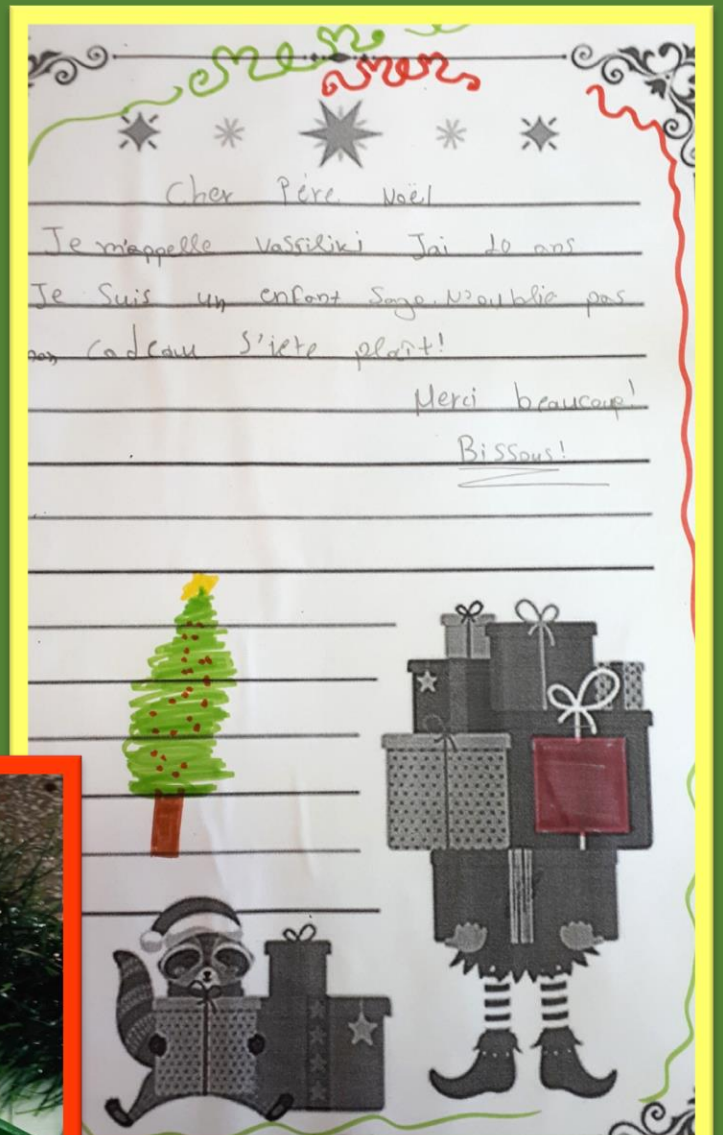 Cher Père Noël
Je m'appelle Vassiliki Jai 10 ans
Je Suis un enfant Sage. N'oublie pas
cadeau S'iete plaît!
Merci beaucoup!
Bissous!